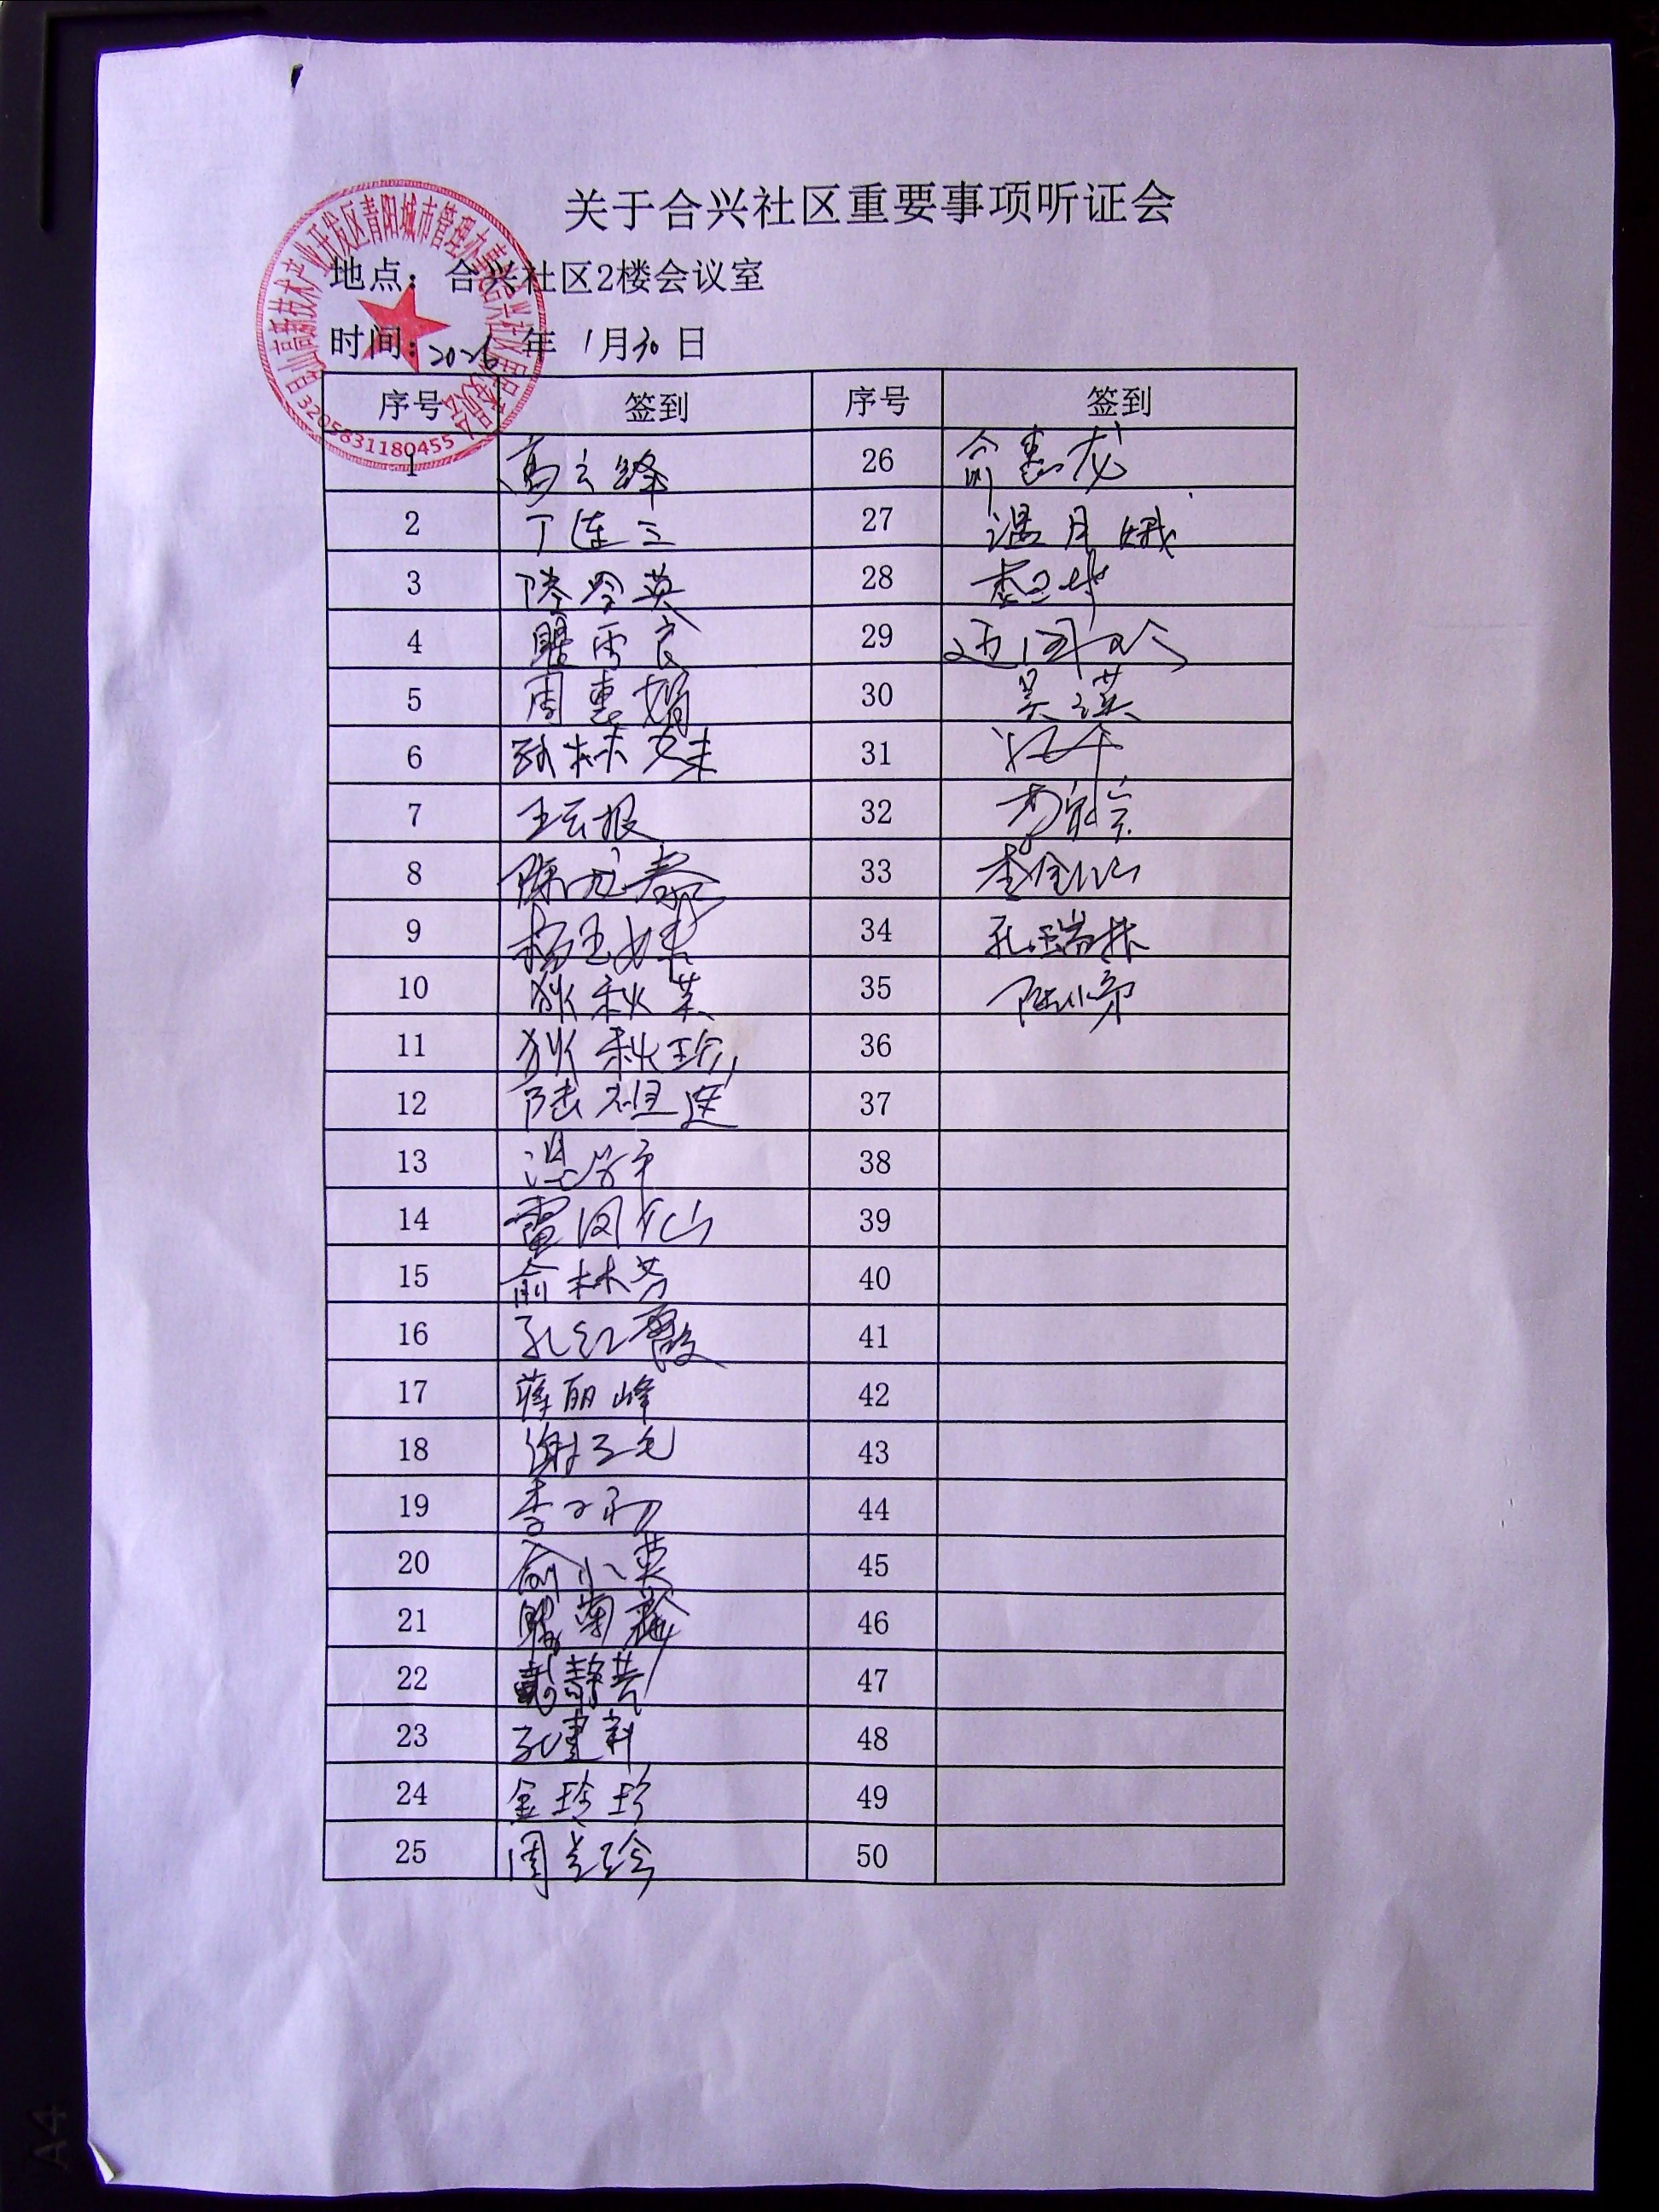 关于合兴社区重要事项听证会
昆山高新技术产业开发区青阳城市管理办事处合兴社区居民委员会
3205831180455
地点：合兴社区2楼会议室
时间：2026年 1月30日
序号 签到 序号 签到
1 高云峰 26 俞惠龙
2 丁连三 27 温月娥
3 陆岑英 28
4 瞿雪良 29
5 周惠娟 30 吴漢
6 孙林妹 31
7 王云根 32
8 陈龙春 33 李金仙
9 杨玉妹 34 孔瑞林
10 狄秋英 35 陆小弟
11 狄秋珍 36
12 陆祖廷 37
13 38
14 雷凤仙 39
15 俞林芳 40
16 孔红霞 41
17 蒋丽峰 42
18 谢三毛 43
19 44
20 俞小英 45
21 46
22 戴静芸 47
23 孔建新 48
24 金珍珍 49
25 周芝珍 50
A4